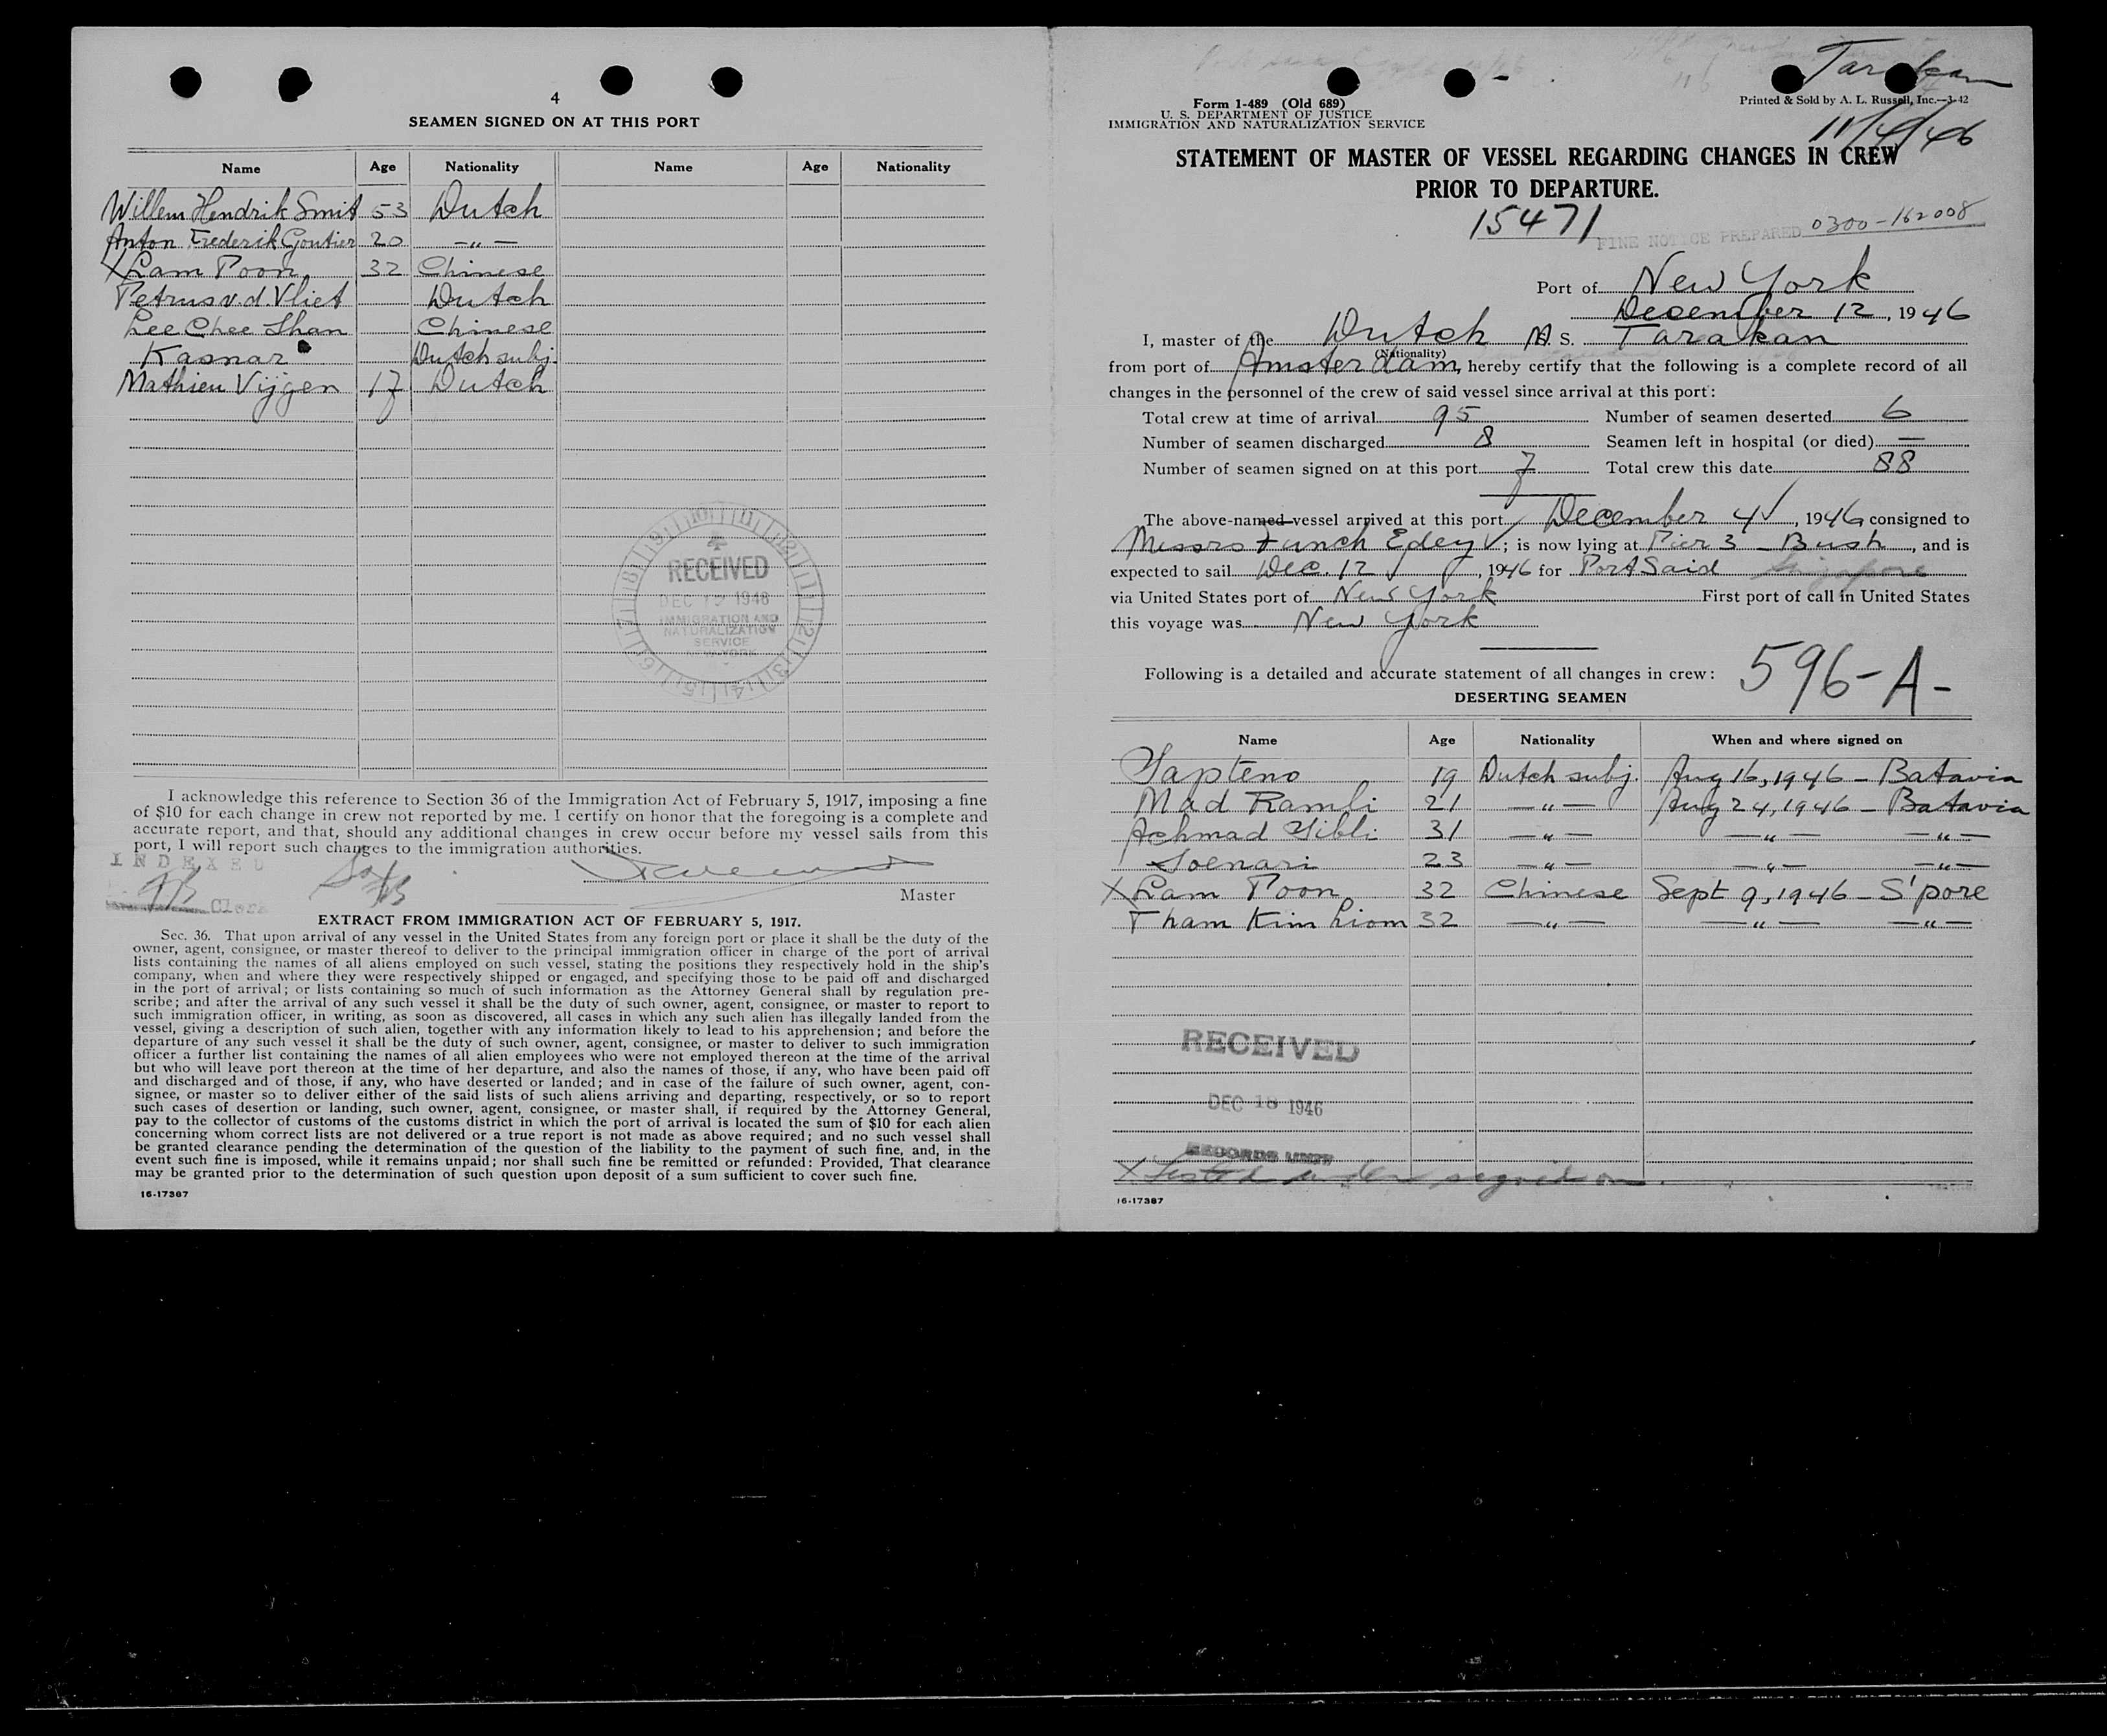 4
SEAMEN SIGNED ON AT THIS PORT
Name Age Nationality Name Age Nationality
Willem Hendrik Smit 53 Dutch
Anton Frederik Goutier 20 —"—
X Lam Poon, 32 Chinese
Petrus v.d. Vliet Dutch
Lee Chee Shan Chinese
Kasnar Dutch subj.
Mathieu Vijgen 17 Dutch
RECEIVED
DEC 1946
IMMIGRATION AND
NATURALIZATION
SERVICE
I acknowledge this reference to Section 36 of the Immigration Act of February 5, 1917, imposing a fine
of $10 for each change in crew not reported by me. I certify on honor that the foregoing is a complete and
accurate report, and that, should any additional changes in crew occur before my vessel sails from this
port, I will report such changes to the immigration authorities.
INDEXED
Clerk
Master
EXTRACT FROM IMMIGRATION ACT OF FEBRUARY 5, 1917.
Sec. 36. That upon arrival of any vessel in the United States from any foreign port or place it shall be the duty of the
owner, agent, consignee, or master thereof to deliver to the principal immigration officer in charge of the port of arrival
lists containing the names of all aliens employed on such vessel, stating the positions they respectively hold in the ship's
company, when and where they were respectively shipped or engaged, and specifying those to be paid off and discharged
in the port of arrival; or lists containing so much of such information as the Attorney General shall by regulation pre-
scribe; and after the arrival of any such vessel it shall be the duty of such owner, agent, consignee, or master to report to
such immigration officer, in writing, as soon as discovered, all cases in which any such alien has illegally landed from the
vessel, giving a description of such alien, together with any information likely to lead to his apprehension; and before the
departure of any such vessel it shall be the duty of such owner, agent, consignee, or master to deliver to such immigration
officer a further list containing the names of all alien employees who were not employed thereon at the time of the arrival
but who will leave port thereon at the time of her departure, and also the names of those, if any, who have been paid off
and discharged and of those, if any, who have deserted or landed; and in case of the failure of such owner, agent, con-
signee, or master so to deliver either of the said lists of such aliens arriving and departing, respectively, or so to report
such cases of desertion or landing, such owner, agent, consignee, or master shall, if required by the Attorney General,
pay to the collector of customs of the customs district in which the port of arrival is located the sum of $10 for each alien
concerning whom correct lists are not delivered or a true report is not made as above required; and no such vessel shall
be granted clearance pending the determination of the question of the liability to the payment of such fine, and, in the
event such fine is imposed, while it remains unpaid; nor shall such fine be remitted or refunded: Provided, That clearance
may be granted prior to the determination of such question upon deposit of a sum sufficient to cover such fine.
16-17387
Tarakan
Form 1-489 (Old 689)
U. S. DEPARTMENT OF JUSTICE
IMMIGRATION AND NATURALIZATION SERVICE
Printed & Sold by A. L. Russell, Inc.—3-42
11/4/46
STATEMENT OF MASTER OF VESSEL REGARDING CHANGES IN CREW
PRIOR TO DEPARTURE.
15471
FINE NOTICE PREPARED 0300-162008
Port of New York
December 12, 1946
I, master of the Dutch M. S. Tarakan
(Nationality)
from port of Amsterdam, hereby certify that the following is a complete record of all
changes in the personnel of the crew of said vessel since arrival at this port:
Total crew at time of arrival 95 Number of seamen deserted 6
Number of seamen discharged 8 Seamen left in hospital (or died) —
Number of seamen signed on at this port 7 Total crew this date 88
The above-named vessel arrived at this port December 4 ✓, 1946, consigned to
Messrs Funch Edey ✓; is now lying at Pier 3 - Bush, and is
expected to sail Dec. 12 ✓, 1946 for Port Said Singapore
via United States port of New York First port of call in United States
this voyage was New York
Following is a detailed and accurate statement of all changes in crew:
596-A-
DESERTING SEAMEN
Name Age Nationality When and where signed on
Sapteno 19 Dutch subj. Aug 16, 1946 - Batavia
Mad Ramli 21 —"— Aug 24, 1946 - Batavia
Achmad Sibli 31 —"— —"— —"—
Soenari 23 —"— —"— —"—
X Lam Poon 32 Chinese Sept 9, 1946 - S'pore
Tham Kim Liom 32 —"— —"— —"—
RECEIVED
DEC 18 1946
RECORDS UNIT
X Listed under signed on.
16-17387